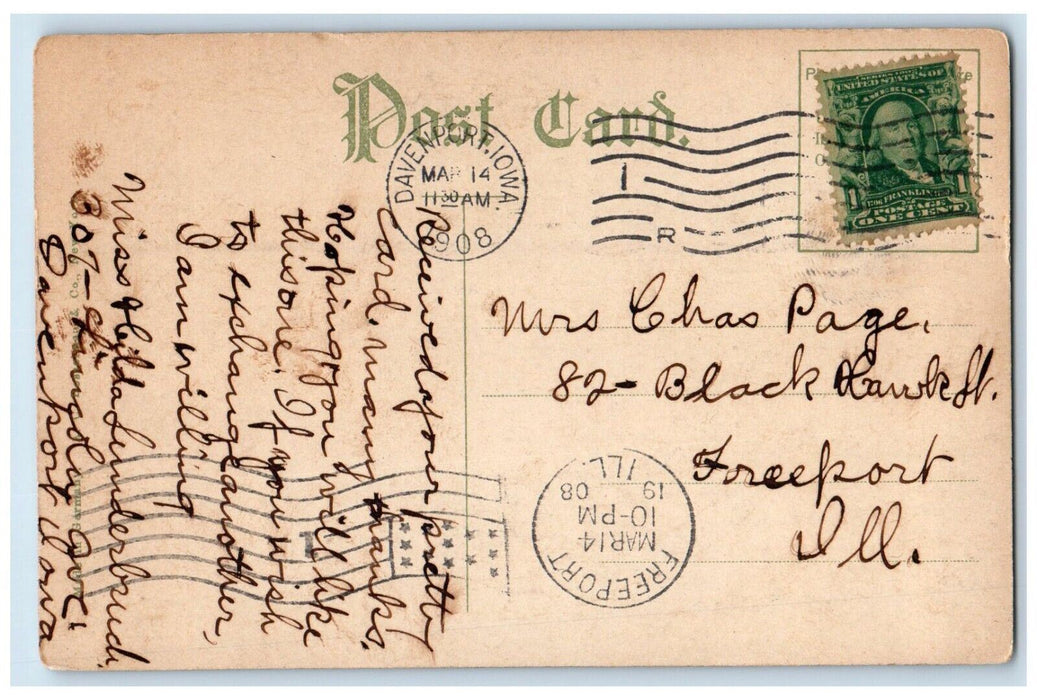 Post Card.
DAVENPORT, IOWA
MAR 14
11 30 AM
1908
1
R
SERIES 1902
UNITED STATES OF
AMERICA
1706 FRANKLIN 1790
1 1
POSTAGE
ONE CENT
Mrs Chas Page.
82- Black Hawk St.
Freeport
Ill.
FREEPORT
MAR 14-
10-PM
19 08
ILL.
Received your pretty
card, many thanks.
Hoping you will like
this one. If you wish
to exchange another,
I am willing
Miss Hilda
307-
Davenport Iowa
Germany